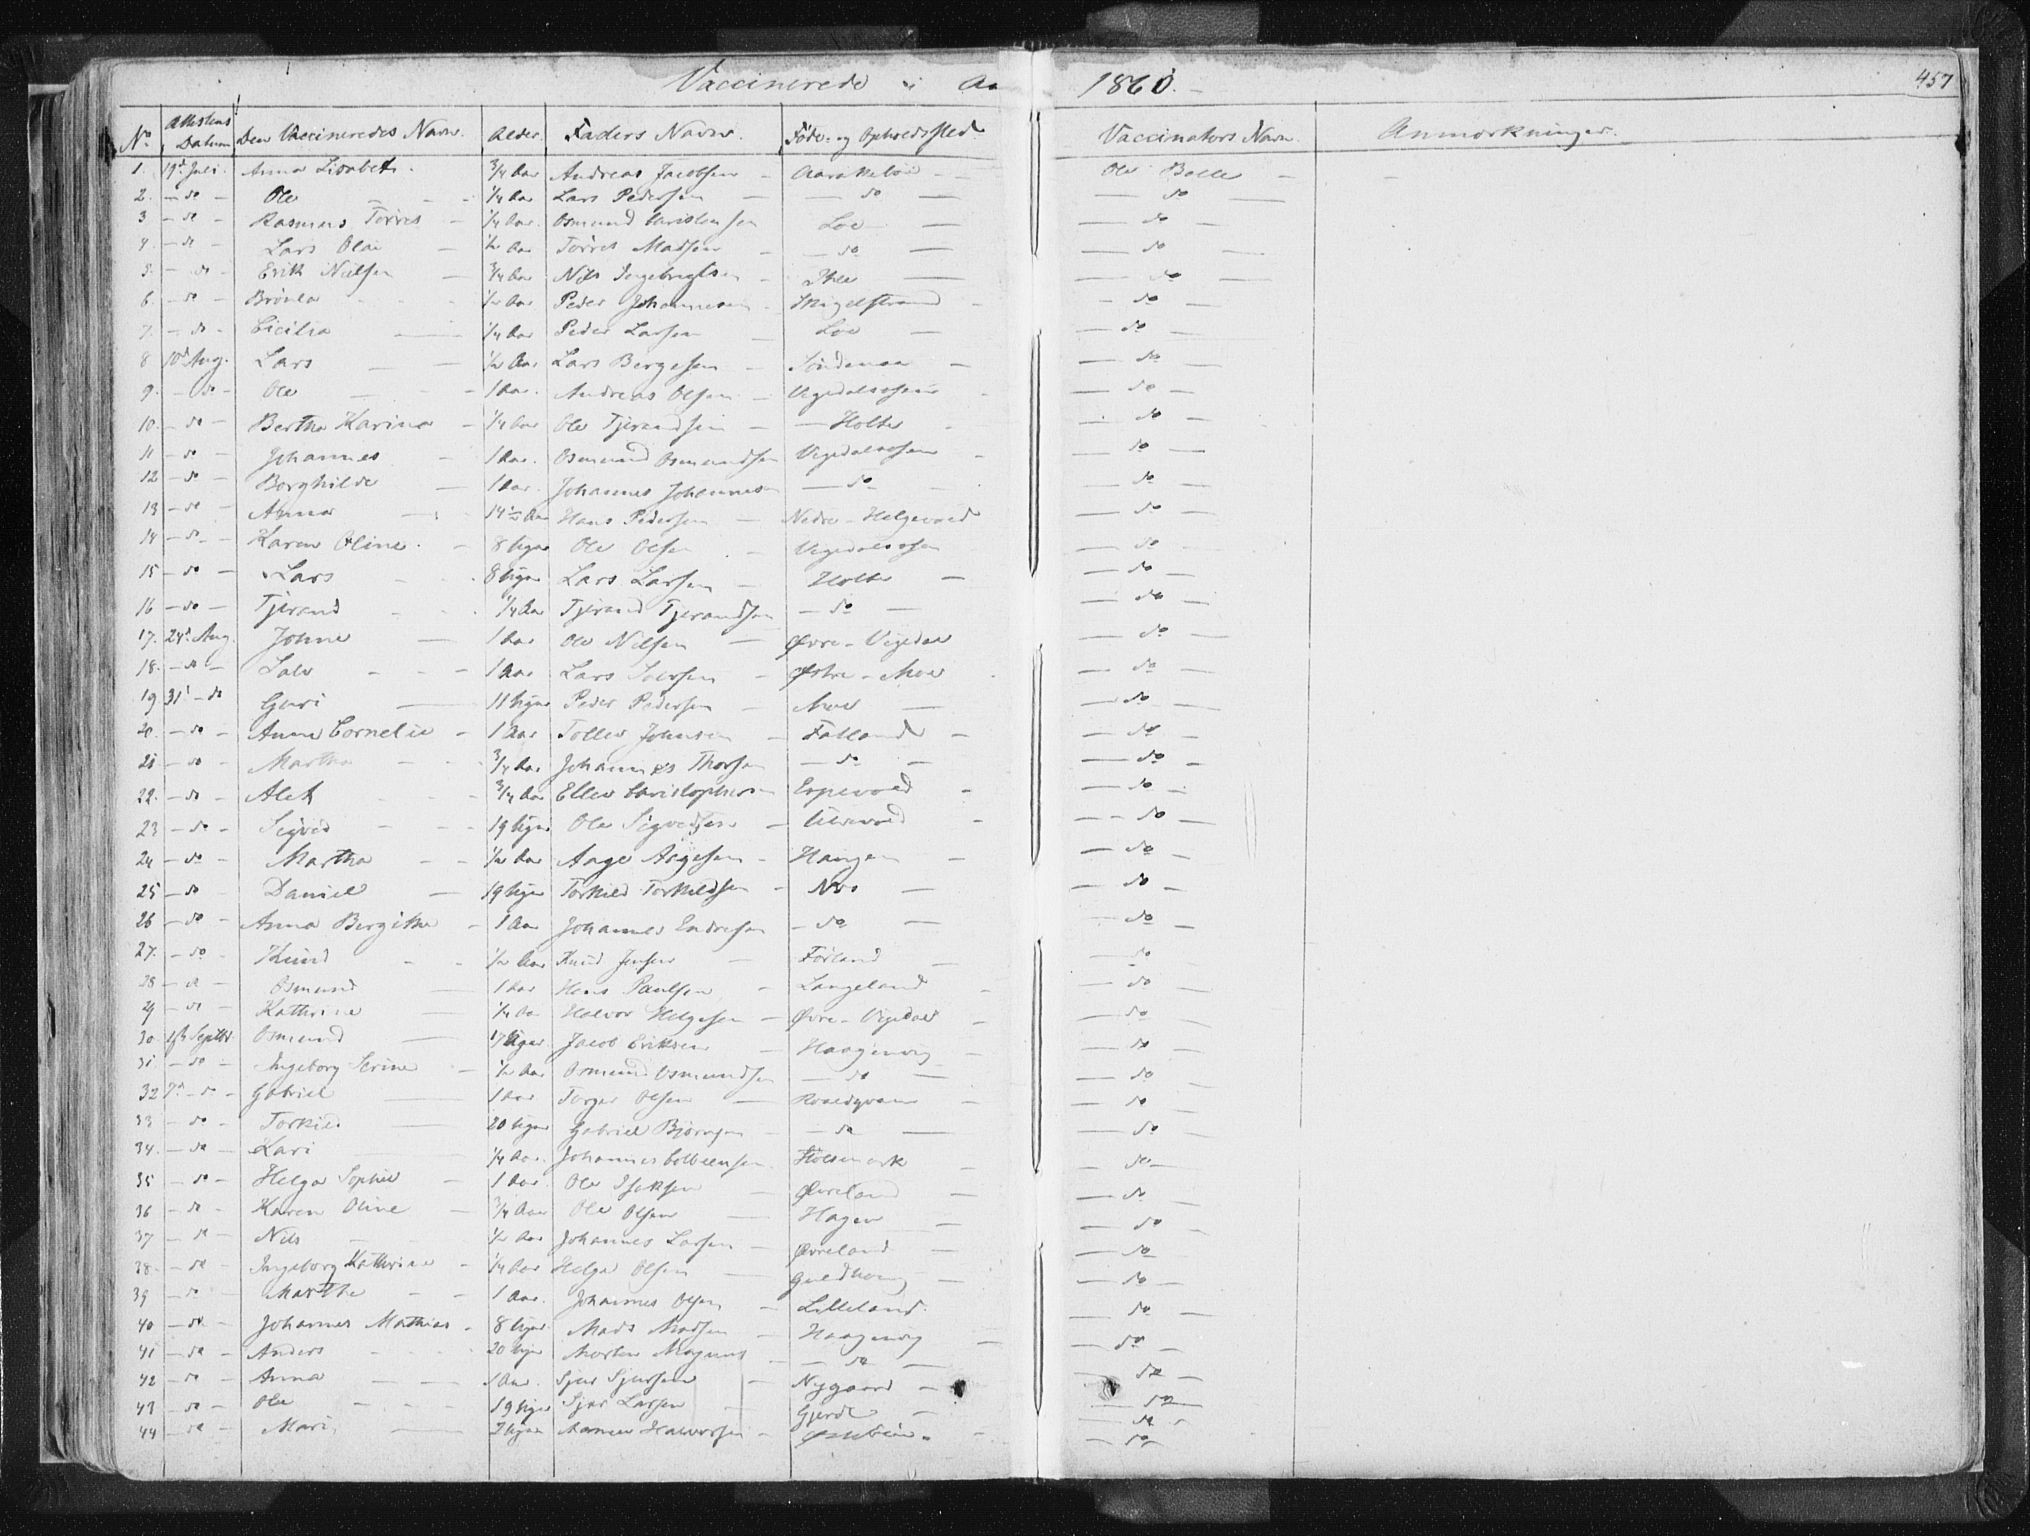 Vaccinerede i Aa 1860. 457
No Attestens Datum Den Vaccineredes Navn. Alder. Faders Navn. Føde- og Opholdssted Vaccinators Navn. Anmærkninger.
1. 19d Juli. Anna Lisabet. 3/4 Aar Andreas Jacobsen - Ole Bolle -
2. - do - Ole 1/4 Aar Lars Pedersen - do - - do -
3 - do - Rasmus Torres - 1/4 Aar. Osmund Christensen Loe - - do -
4. - do - Lars Olai - 1/2 Aar Torres Madsen - do - - do -
5. - do - Erik Nielsen - 3/4 Aar Nils Ingebrigtsen - - do -
6. - do - 1/2 Aar Peder Johannesen - - do -
7. - do - Cicilia - 1/4 Aar Peder Larsen Loe - - do -
8 10d Aug. Lars - 1/2 Aar Lars Bergesen - Söndenaa - - do -
9. - do - Ole - 1 Aar. Andreas Olsen - Vigedalsosen - - do -
10. - do - Bertha Karina - 1/4 Aar Ole Tjerandsen - - Holte - - do -
11 - do - Johannes - 1 Aar. Osmund Osmundsen Vigedalsosen - - do -
12 - do - Borghilde - 1 Aar. Johannes Johannesen - do - - do -
13 - do - Anna - 14 1/2 Aar Hans Pedersen - Nedre - Helgevold - do -
14 - do - Karen Oline. - 8 Uger Ole Olsen - Vigedalsosen - do -
15 - do - Lars - 8 Uger Lars Larsen - Holte - - do -
16 - do - Tjerand 1/4 Aar Tjerand Tjerandsen - do - - do -
17. 24d Aug. Johne - 1 Aar Ole Nilsen - Øvre - Vigedal - do -
18. - do - Salv - 1 Aar Lars - Østre - Moe - do -
19 31d - do Guri - 11 Uger Peder Pedersen - Moe - - do -
20. - do - Anna Cornelie - 1 Aar Tollev Johnsen - Fatland - - do -
21 - do - Martha - 3/4 Aar Johannes Thorsen - do - - do -
22. - do - Alet - 3/4 Aar Ellev Christophersen Erpevold - - do -
23 - do - Sigvid - 19 Uger Ole Sigvedsen - Ulvevold - - do -
24 - do - Martha - 1/2 Aar Aage Aagesen - Haugen - - do -
25 - do Daniel - 19 Uger Torkild Torkildsen - Nes - - do -
26 - do - Anna Bergithe - 1 Aar Johannes Endresen - do - - do -
27. - do - Knud - 1/2 Aar Knud Jensen - Førland - - do
28 - do - Osmund - 1 Aar Hans Paulsen - Langeland - - do -
29 - do - Kathrine - 1/4 Aar Halvor Helgesen - Øvre - Vigedal - - do -
30. 1ste Septbr. Osmund - 17 Uger. Jacob Eriksen - Haaginvig - - do -
31. - do - Ingeborg Serine - 1/2 Aar Osmund Osmundsen - do - - do -
32 7d - do - Gabriel - 1 Aar Torger Olsen - - do -
33 - do - Torkild - 20 Uger Gabriel Bjørnsen - do - - do -
34. - do - Kari - 1/4 Aar. Johannes - do -
35 - do - Helga Sophie - 1 Aar. Ole Isaksen - Øvreland - - do -
36 - do - Karen Oline - 3/4 Aar Ole Olsen - Hagen - - do -
37 - do - Nils - 1/2 Aar Johannes Larsen - Øvreland - - do -
38. - do - Ingeborg Kathrine - 1/4 Aar Helge Olsen - - do -
39 - do - Marthe - 1 Aar. Johannes Olsen - Lilleland. - do -
40 - do - Johannes Mathias - 8 Uger Mads Madsen - Haaginvig - - do -
41 - do - Anders - 20 Uger Morten Magnus - - do - - do -
42 - do - Anna - 1 Aar. Sjur Sjursen - Nygaard - - do -
43 - do - Ole - 19 Uger Sjur Larsen - Gjerde - - do -
44 - do - Mari - Uger Halvorsen - - do -